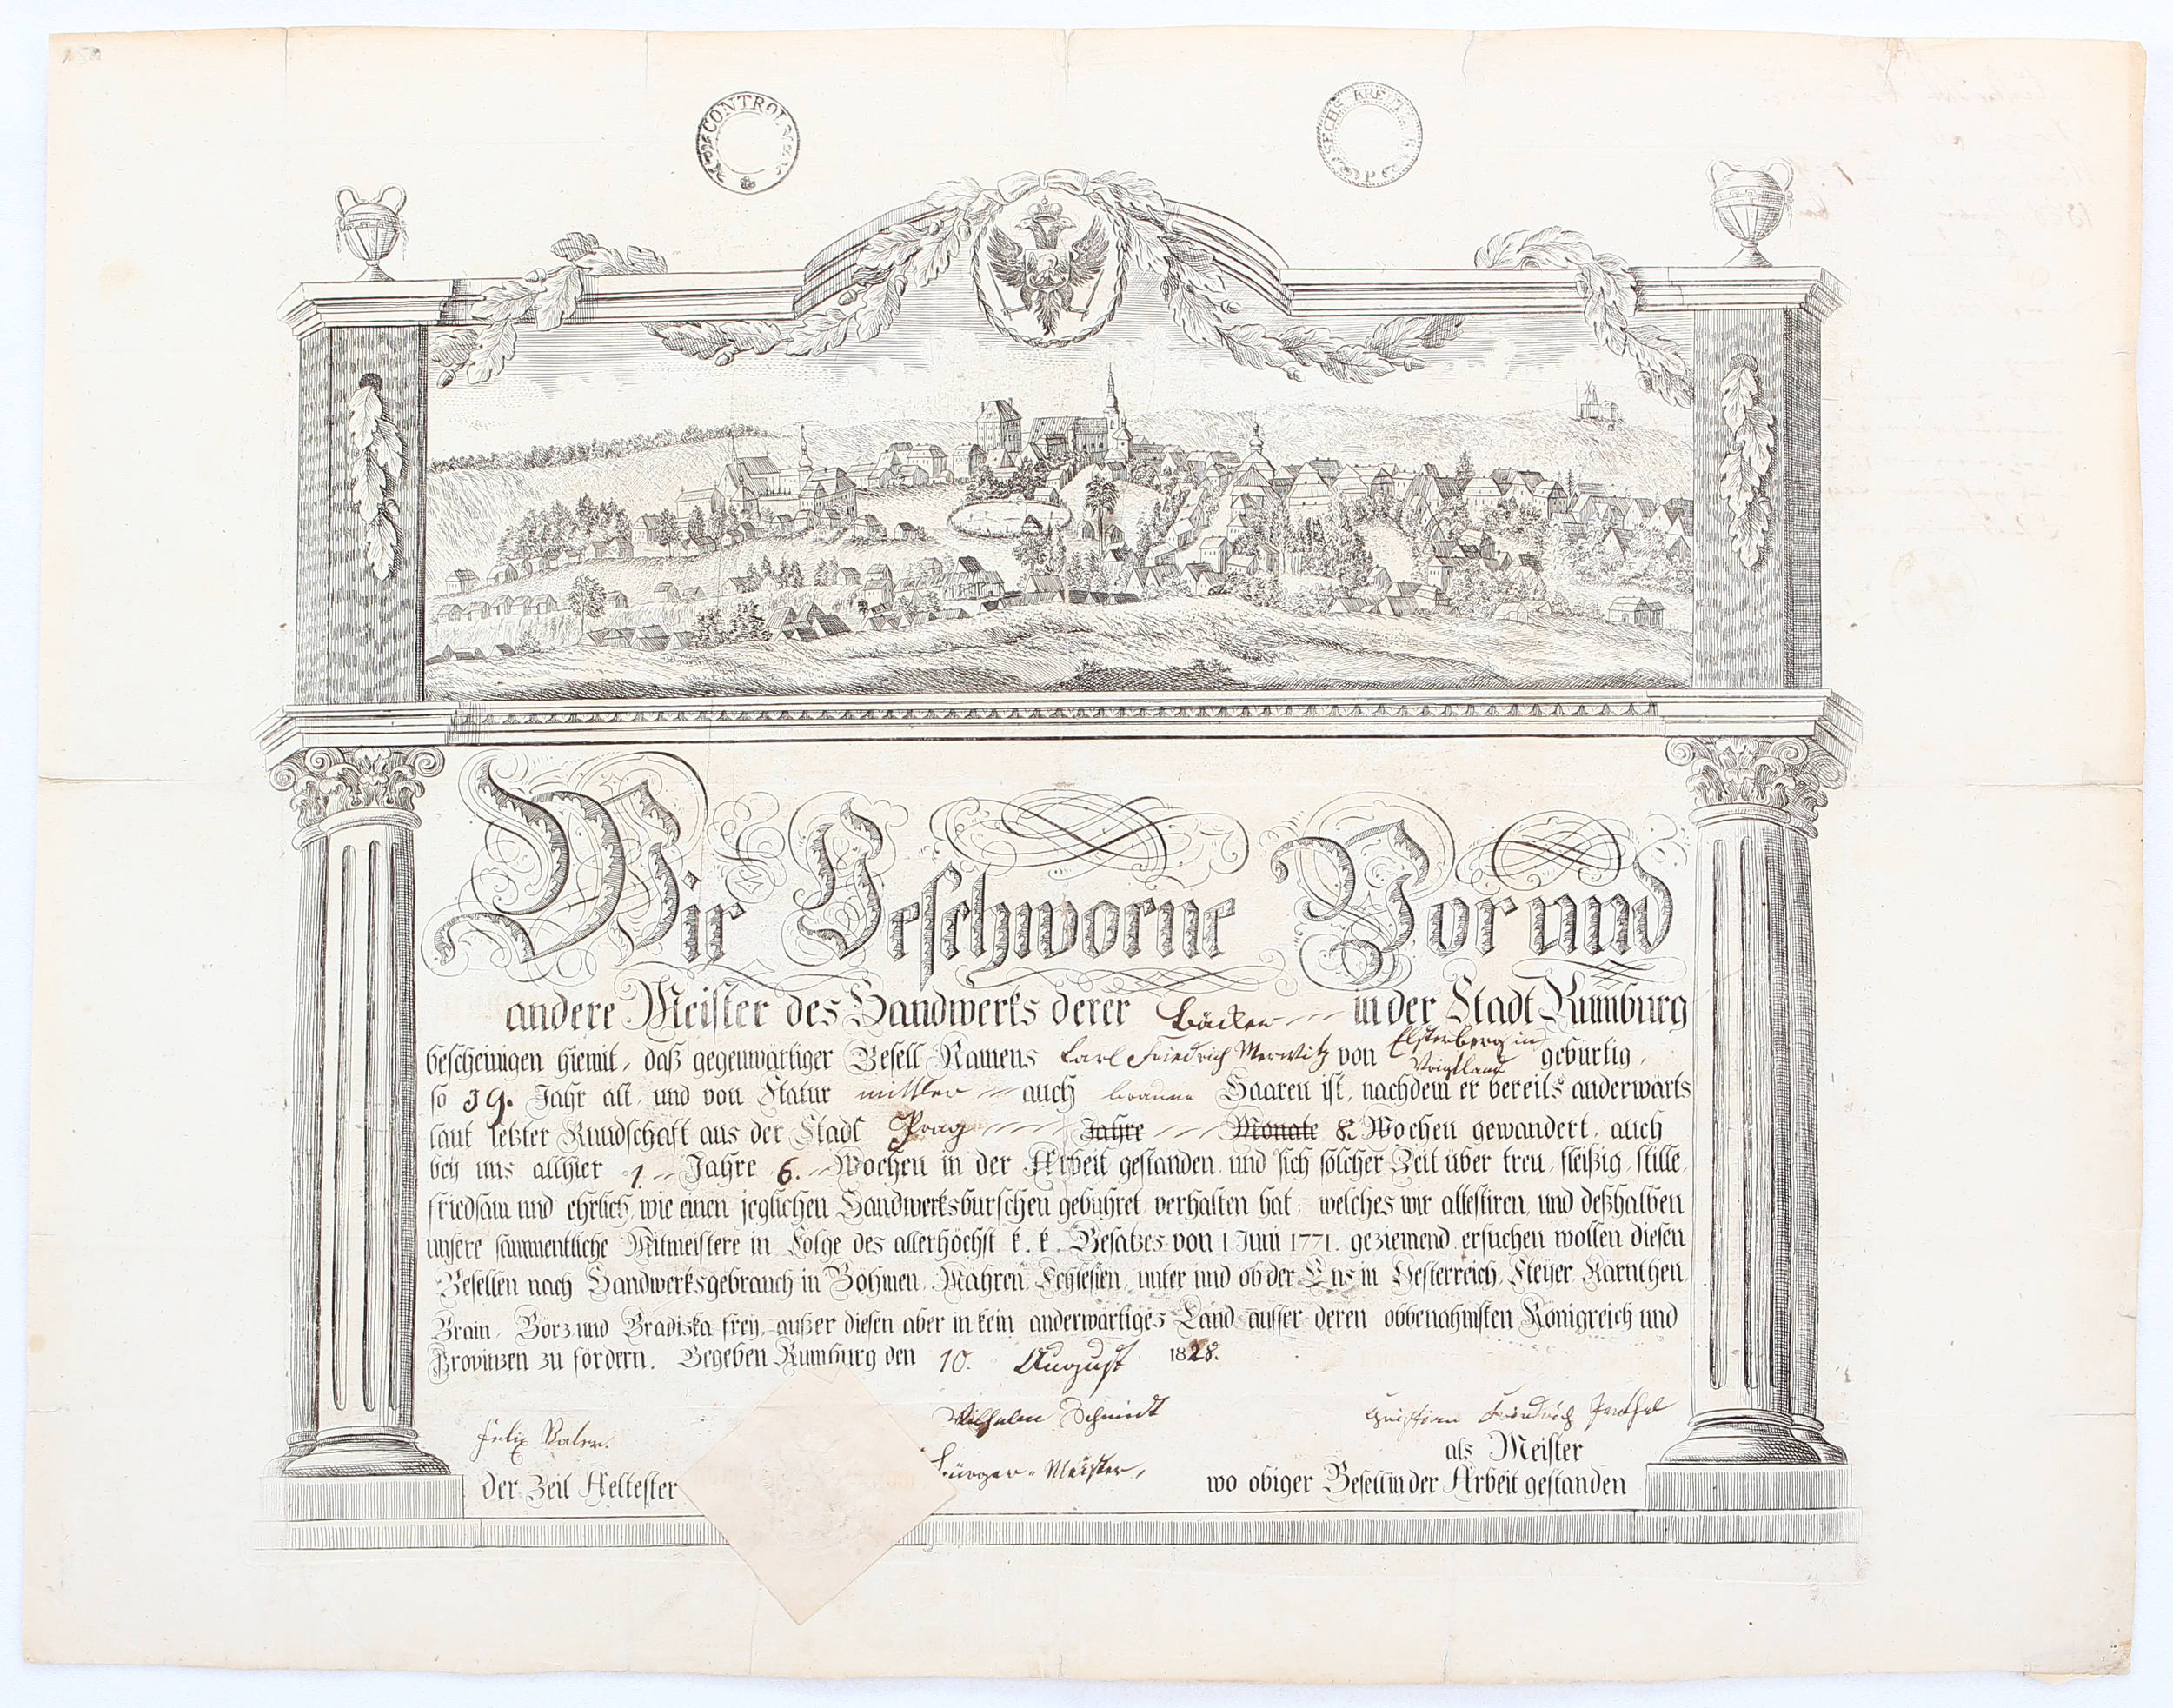 CONTROL
SECHS KREUTZ
Wir Geschworne Vor und
andere Meister des Handwerks derer Bäcker in der Stadt Rumburg
bescheinigen hiemit, daß gegenwärtiger Gesell Namens Carl Friedrich Merwitz von Elsterberg in Voigtland gebürtig,
so 39. Jahr alt, und von Statur mittler auch braune Haaren ist, nachdem er bereits anderwärts
laut letzter Kundschaft aus der Stadt Prag Jahre Monate 8 Wochen gewandert, auch
bey uns allhier 1 Jahre 6. Wochen in der Arbeit gestanden, und sich solcher Zeit über treu, fleißig, stille,
friedsam und ehrlich, wie einen jeglichen Handwerksburschen gebühret, verhalten hat; welches wir attestiren, und deßhalben
unsere sämmentliche Mitmeistere in Folge des allerhöchst k. k. Gesatzes von 1 Junii 1771. geziemend ersuchen wollen diesen
Gesellen nach Handwerksgebrauch in Böhmen, Mähren, Schlesien, unter und ob der Ens in Oesterreich, Steyer, Kärnthen,
Krain, Görz und Gradiska frey, außer diesen aber in kein anderwärtiges Land ausser deren obbenahmsten Königreich und
Provinzen zu fördern. Gegeben Rumburg den 10. August 1828.
Wilhelm Schmidt
Christian Friedrich
Felix
als Meister
Bürger-Meister,
der Zeit Aeltester
wo obiger Gesell in der Arbeit gestanden